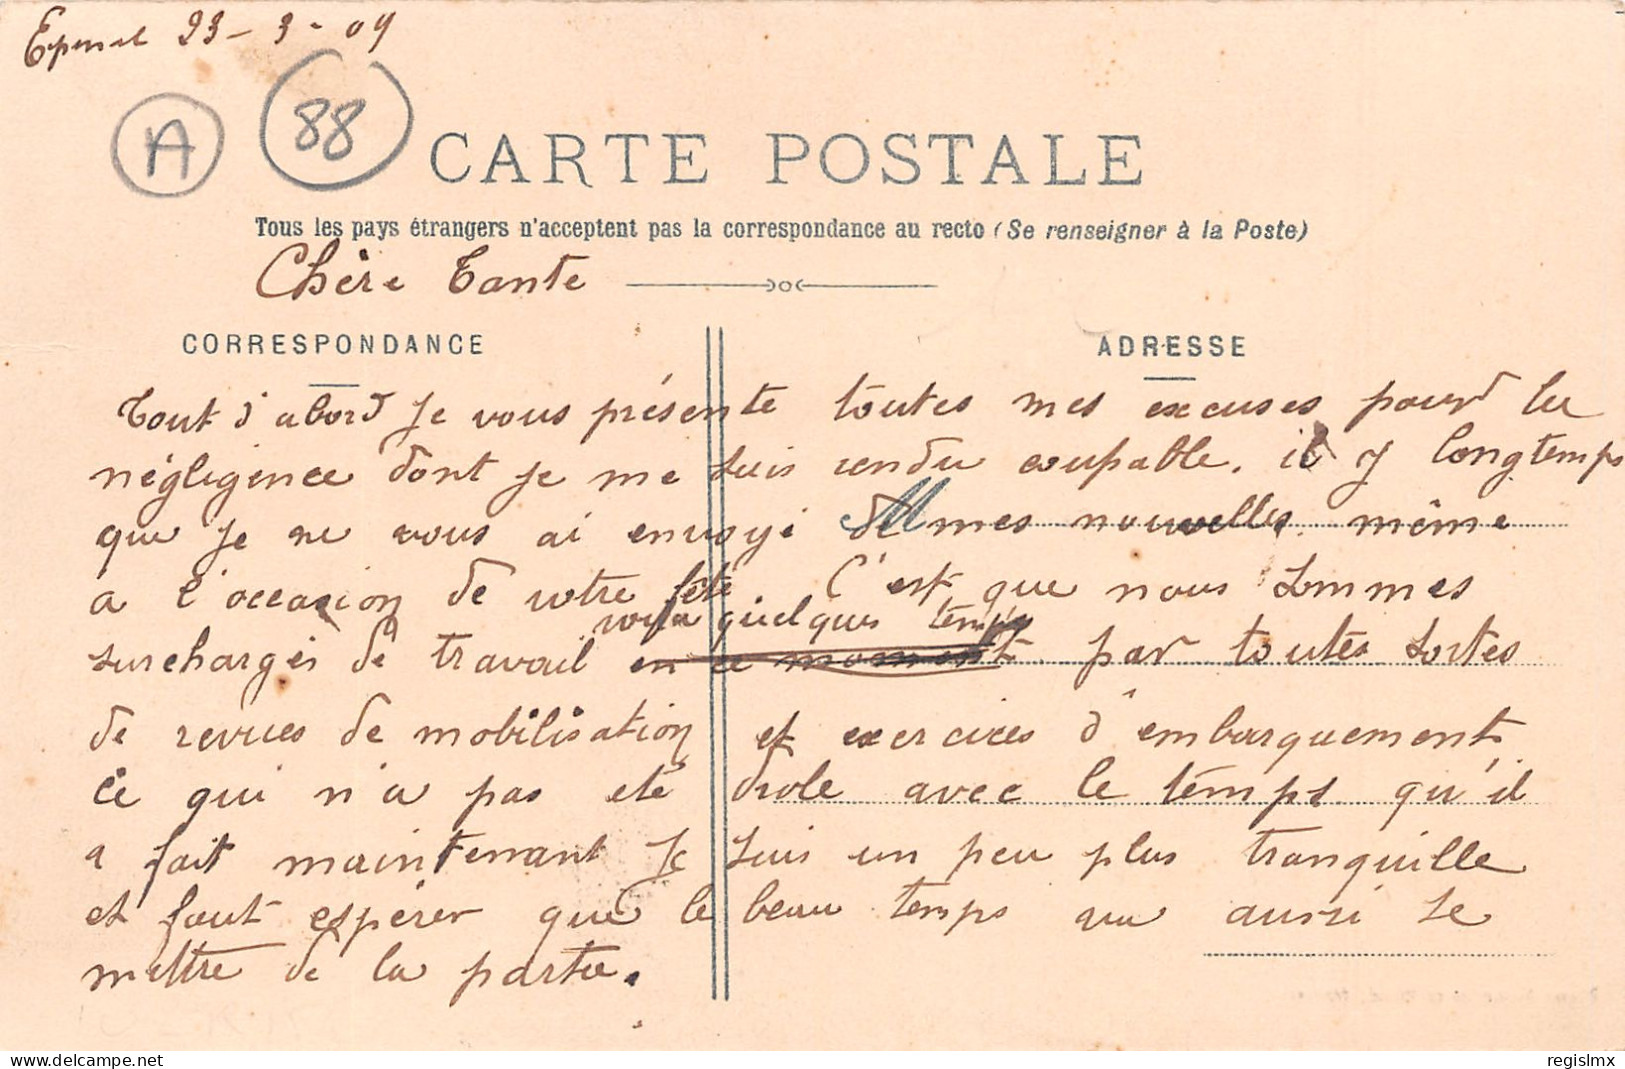 Epinal 23-3-09
A
88
CARTE POSTALE
Tous les pays étrangers n'acceptent pas la correspondance au recto (Se renseigner à la Poste)
Chère Tante
CORRESPONDANCE
ADRESSE
Tout d'abord je vous présente toutes mes excuses pour la
négligence dont je me suis rendu coupable. il y longtemps
que je ne vous ai envoyé de mes nouvelles. même
a l'occasion de votre fête C'est que nous sommes
voila quelques temps
surchargés de travail en ce moment par toutes sortes
de revues de mobilisation et exercices d'embarquement
ce qui n'a pas été drole avec le temps qu'il
a fait maintenant je suis un peu plus tranquille
et faut espérer que le beau temps va aussi se
mettre de la partie.
delcampe.net
regislmx